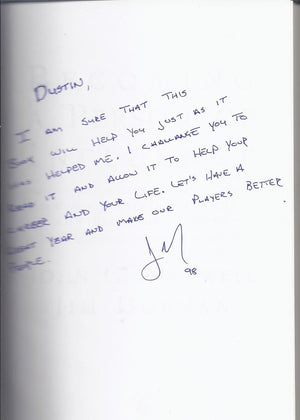 Dustin,
I am sure that this
book will help you just as it
has helped me. I challange you to
read it and allow it to help your
career and your life. Let's have a
great year and make our players better
people.
JM
98